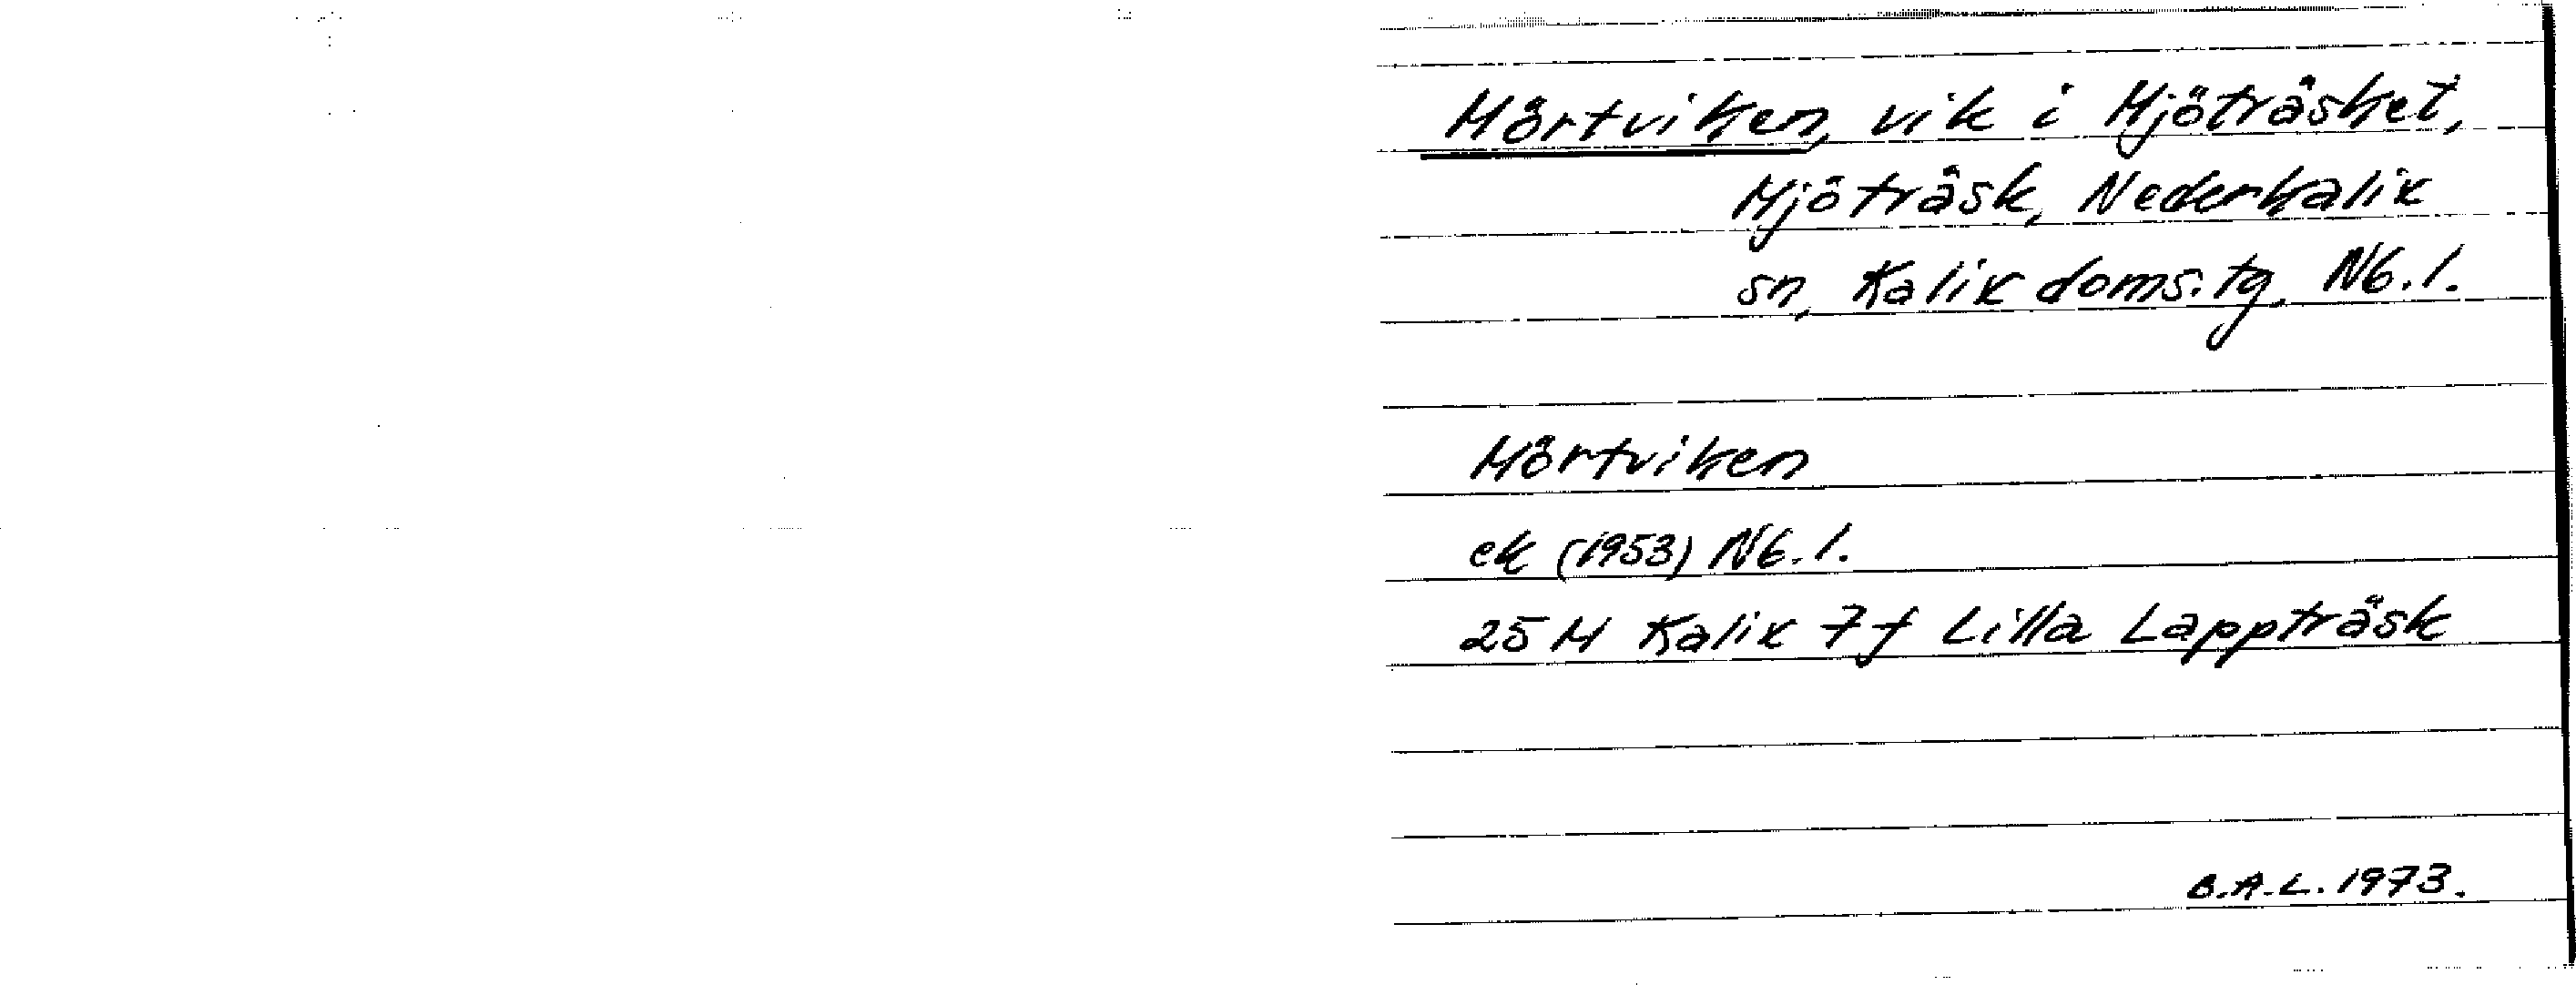 Mörtviken, vik i Mjöträsket,
Mjöträsk, Nederkalix
sn, Kalix doms.tg. Nb.l.
Mörtviken
ek (1953) Nb.l.
25 M Kalix 7f Lilla Lappträsk
B.A.L. 1973.